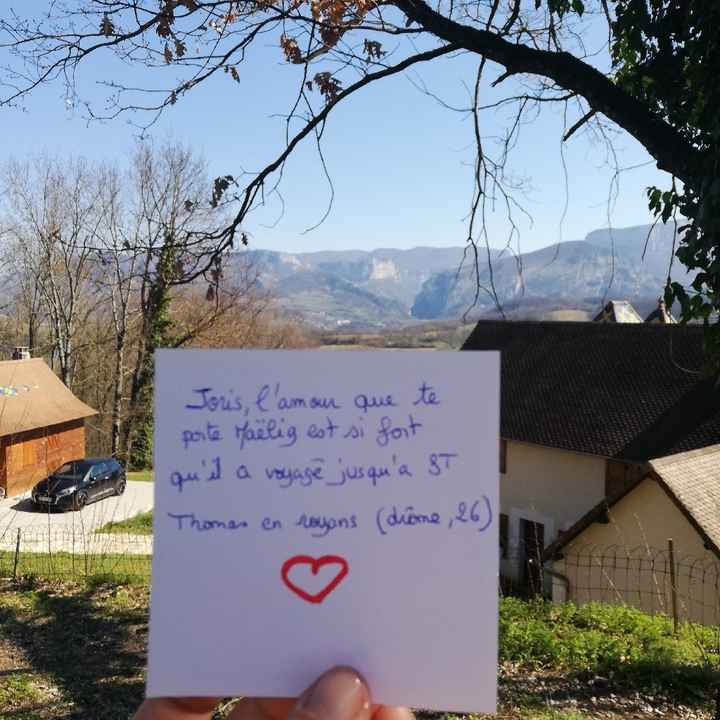 Joris, l'amour que te
porte Maëlig est si fort
qu'il a voyagé jusqu'a ST
Thomas en royans (drôme, 26)